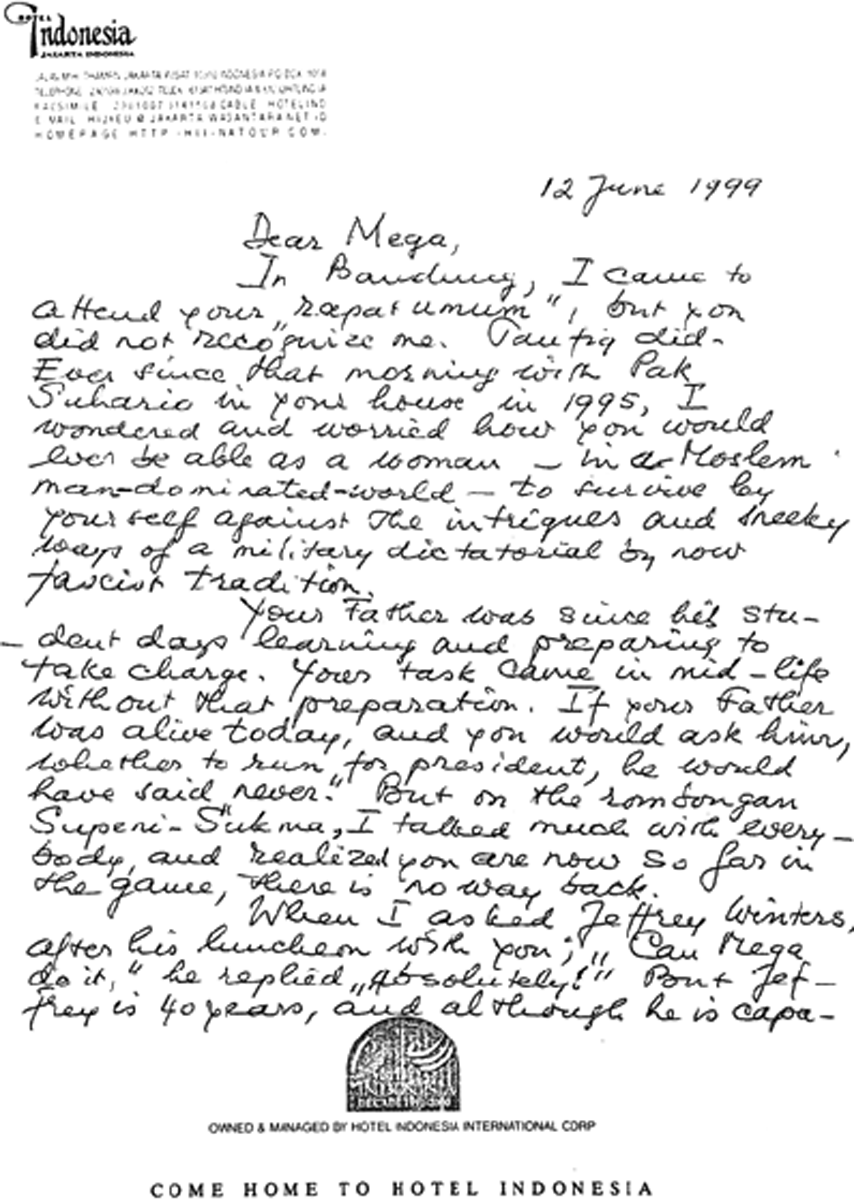 HOTEL
Indonesia
JAKARTA INDONESIA
JALAN M.H. THAMRIN, JAKARTA PUSAT INDONESIA P.O. BOX
TELEPHONE
FACSIMILE CABLE HOTELIND
E MAIL @ JAKARTA.WASANTARA.NET.ID
HOMEPAGE HTTP
12 June 1999
Dear Mega,
In Bandung, I came to
attend your „rapat umum", but you
did not recognize me. Taufiq did-
Ever since that morning with Pak
Suhario in your house in 1995, I
wondered and worried how you would
ever be able as a woman – in a Moslem
man-dominated-world – to survive by
yourself against the intrigues and sneeky
ways of a military dictatorial by now
fascist tradition.
Your Father was since his stu-
-dent days learning and preparing to
take charge. Your task came in mid-life
without that preparation. If your Father
was alive today, and you would ask him,
whether to run for president, he would
have said „never." But on the rombongan
Superi-Sukma, I talked much with every-
body, and realized you are now so far in
the game, there is no way back.
When I asked Jeffrey Winters,
after his luncheon with you; „Can Mega
do it," he replied „Absolutely!" But Jef-
frey is 40 years, and although he is capa-
OWNED & MANAGED BY HOTEL INDONESIA INTERNATIONAL CORP
COME HOME TO HOTEL INDONESIA